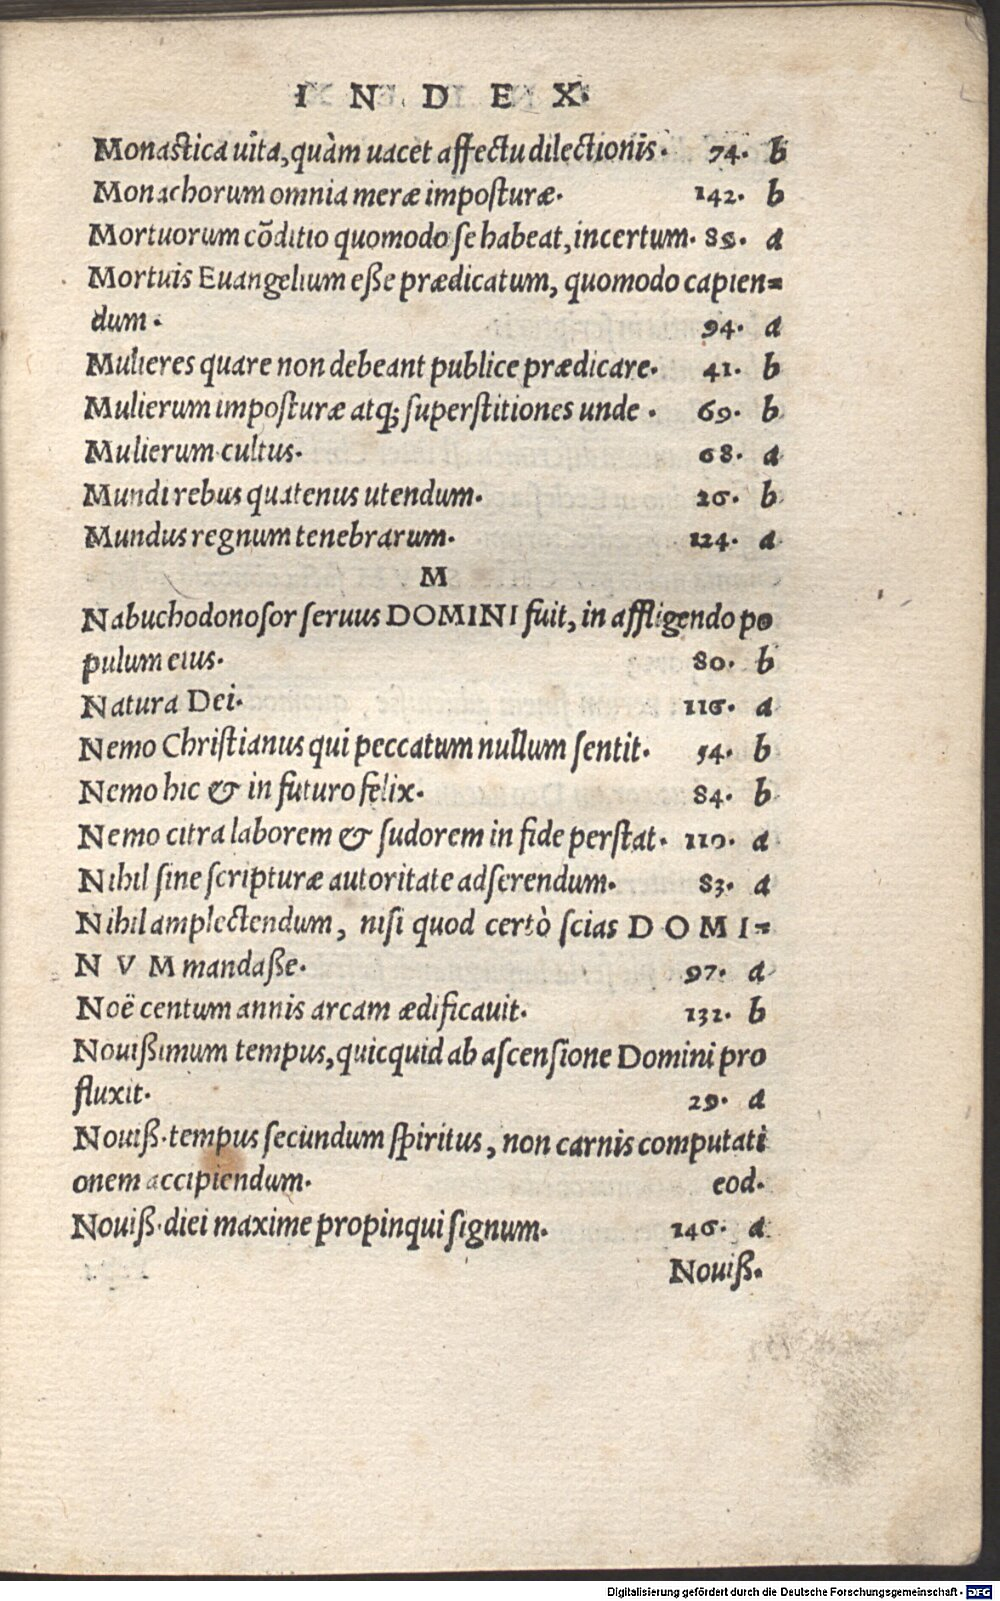 INDEX
Monastica uita, quàm uacet affectu dilectionis. 74. b
Monachorum omnia meræ imposturæ. 142. b
Mortuorum cõditio quomodo se habeat, incertum. 85. a
Mortuis Euangelium eße prædicatum, quomodo capien=
dum. 94. a
Mulieres quare non debeant publice prædicare. 41. b
Mulierum imposturæ atq; superstitiones unde. 69. b
Mulierum cultus. 68. a
Mundi rebus quatenus utendum. 26. b
Mundus regnum tenebrarum. 124. a
M
Nabuchodonosor seruus DOMINI fuit, in affligendo po
pulum eius. 80. b
Natura Dei. 116. a
Nemo Christianus qui peccatum nullum sentit. 54. b
Nemo hic & in futuro felix. 84. b
Nemo citra laborem & sudorem in fide perstat. 110. a
Nihil sine scripturæ autoritate adserendum. 83. a
Nihil amplectendum, nisi quod certò scias DOMI=
NVM mandaße. 97. a
Noë centum annis arcam ædificauit. 132. b
Nouißimum tempus, quicquid ab ascensione Domini pro
fluxit. 29. a
Nouiß. tempus secundum spiritus, non carnis computati
onem accipiendum. eod.
Nouiß. diei maxime propinqui signum. 146. a
Nouiß.
Digitalisierung gefördert durch die Deutsche Forschungsgemeinschaft - DFG